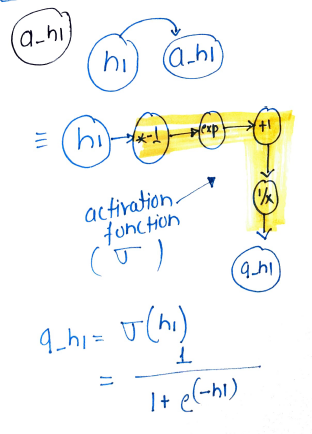 a_h1
h1 a_h1
≡ h1 *-1 exp +1
1/x
activation
function
(σ)
a_h1
a_h1 = σ(h1)
= 1
1 + e^(-h1)